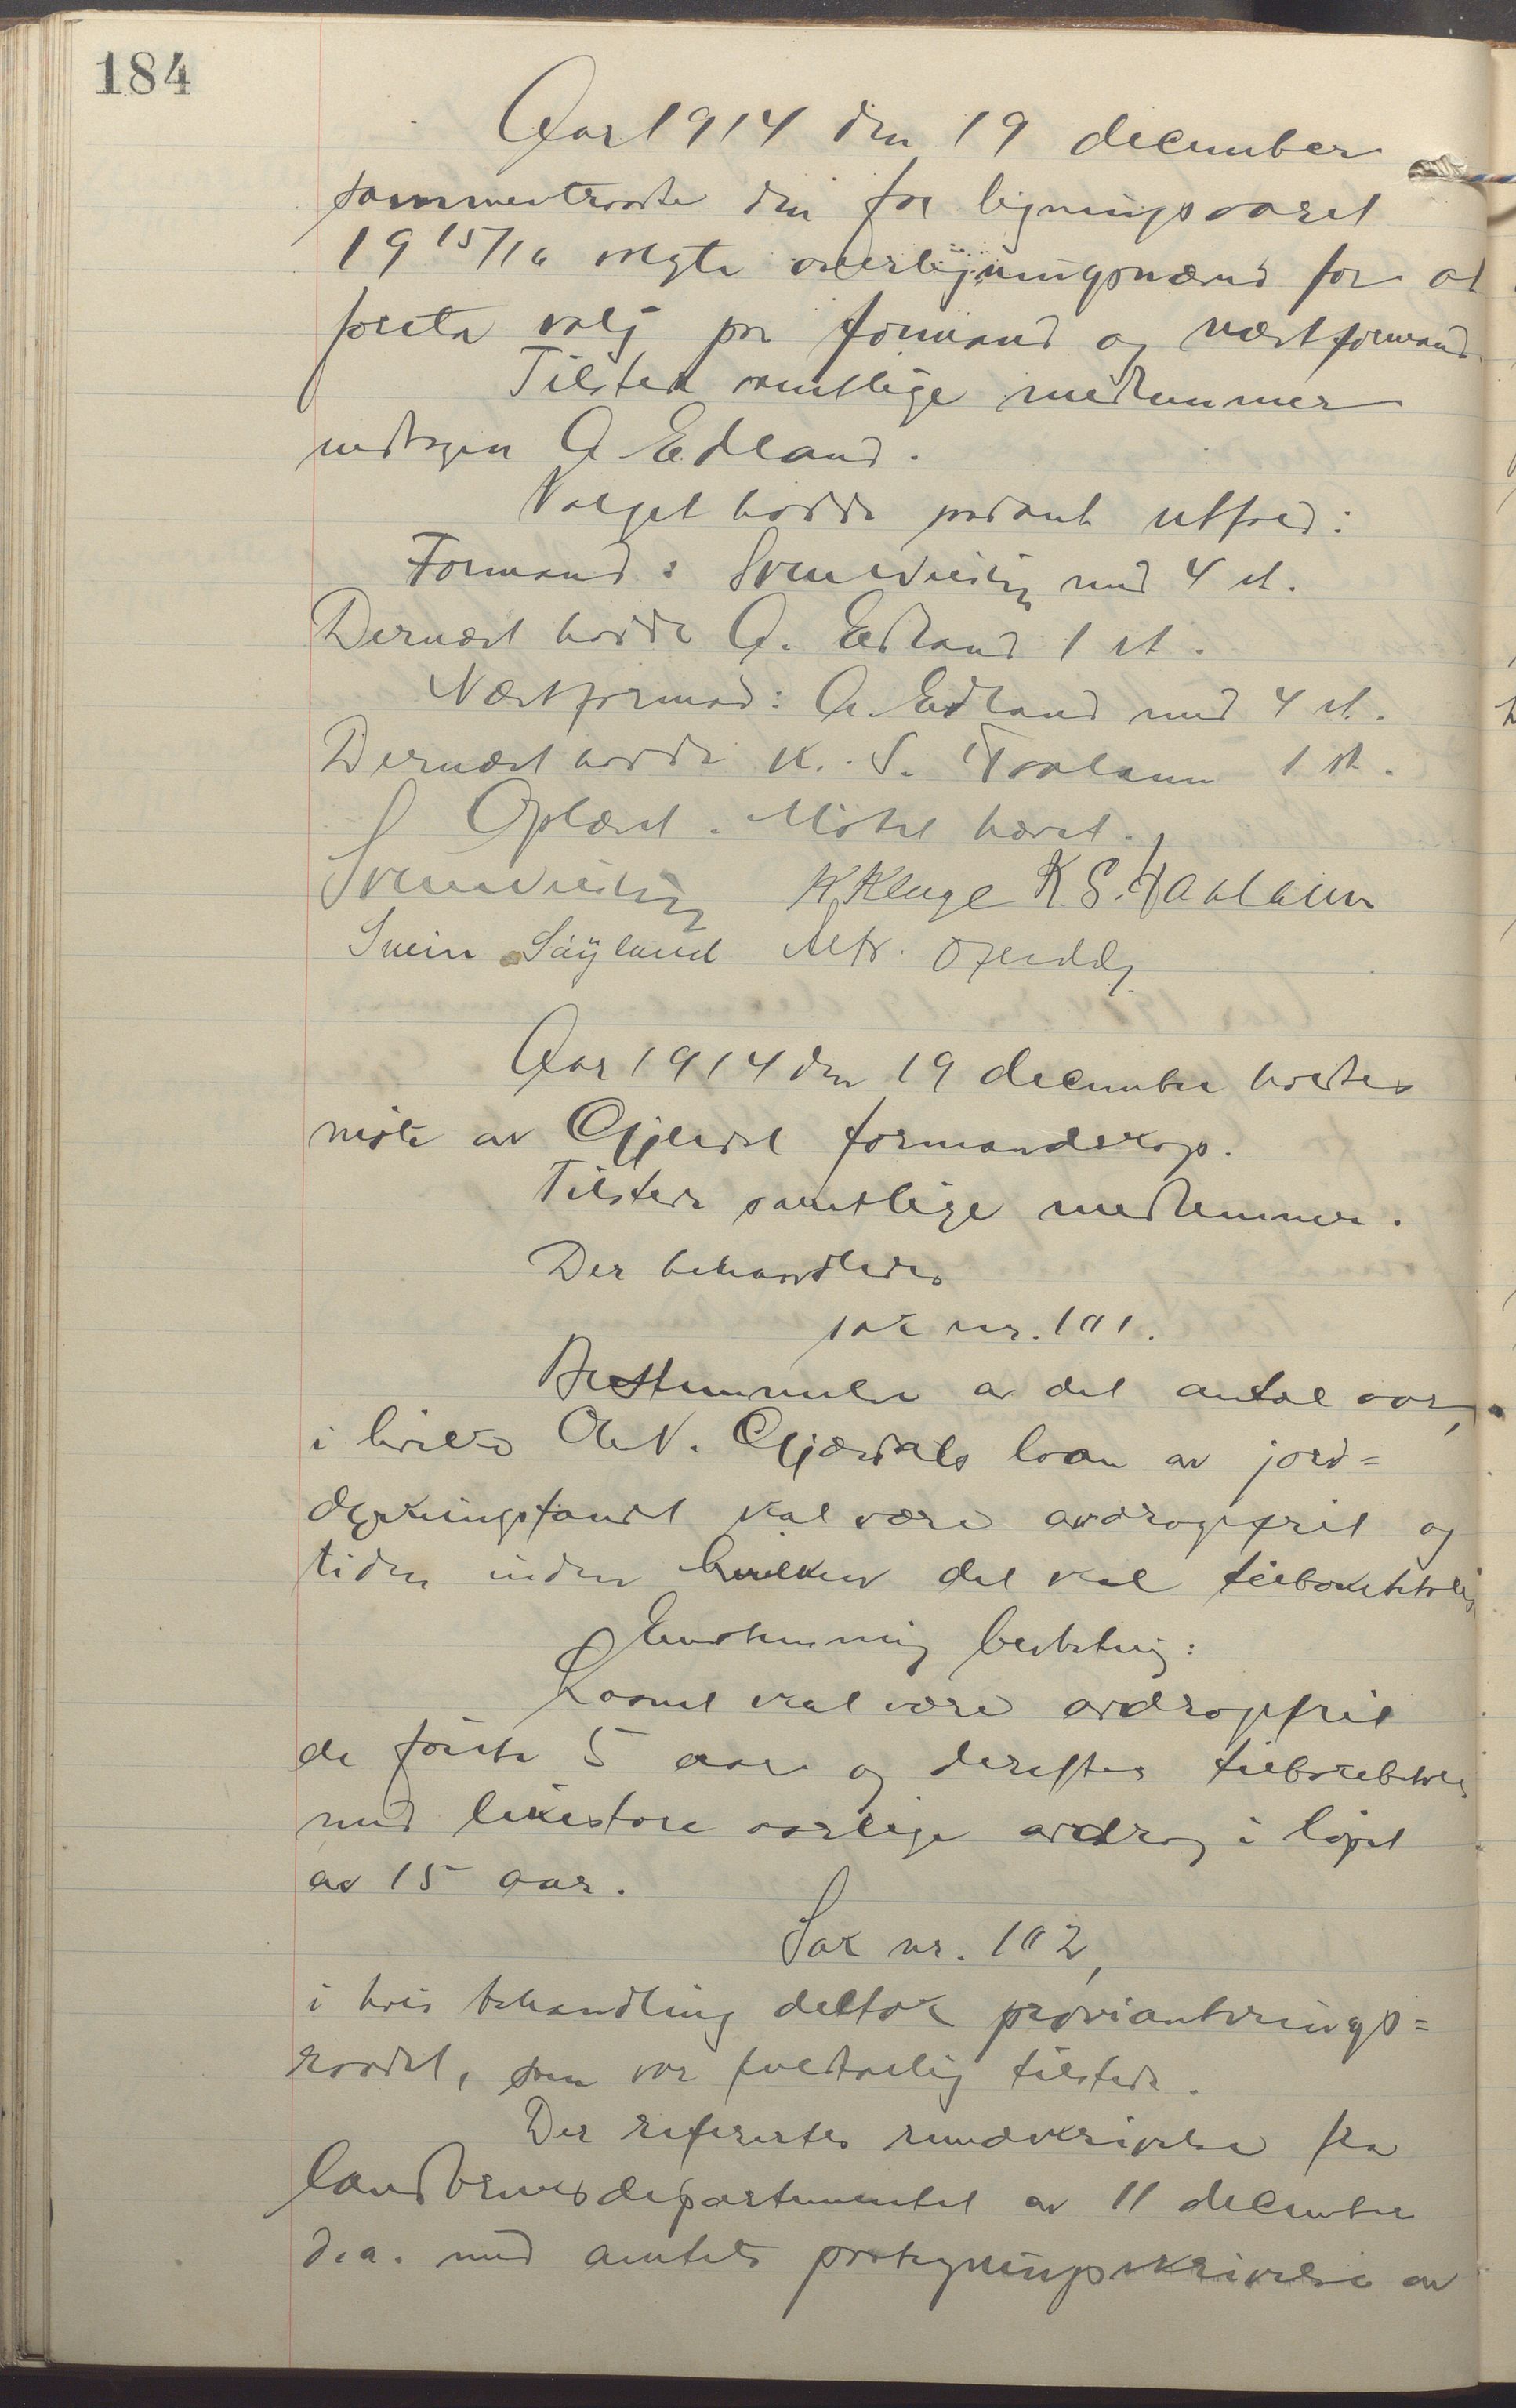 184
Aar 1914 den 19 december
sammentraadte den for ligningsaaret
19 15/16 valgte overligningsnævnd for at
foreta valg paa formand og næstformand.
Tilstede samtlige medlemmer
undtagen A Edland.
Valget hadde saadant utfald:
Formand: med 4 st.
Dernæst hadde A. Edland 1 st.
Næstformad: A. Edland med 4 st.
Dernæst hadde K. S. 1 st.
Oplæst. Møtet hævet.
K Kluge K. S.
Svein Søyland
Aar 1914 den 19 december holdtes
møte av Gjesdal formandskap.
Tilstede samtlige medlemmer.
Der behandledes
sak nr. 101.
Bestemmelse av det antal aar,
i hvilke Ole N. Gjesdals laan av jord=
dyrkningsfondet skal være avdragsfrit og
tiden inden hvilken det skal tilbakebetales
Enstemmig beslutning:
Laanet skal være avdragsfrit
de første 5 aar og derefter tilbakebetales
med likestore aarlige avdrag i løpet
av 15 aar.
Sak nr. 102,
i hvis behandling deltok provianterings=
raadet, som var fuldtallig tilstede.
Der refertes rundskrivelse fra
landbruksdepartementet av 11 december
d.a. med amtets paategningsskrivelse av